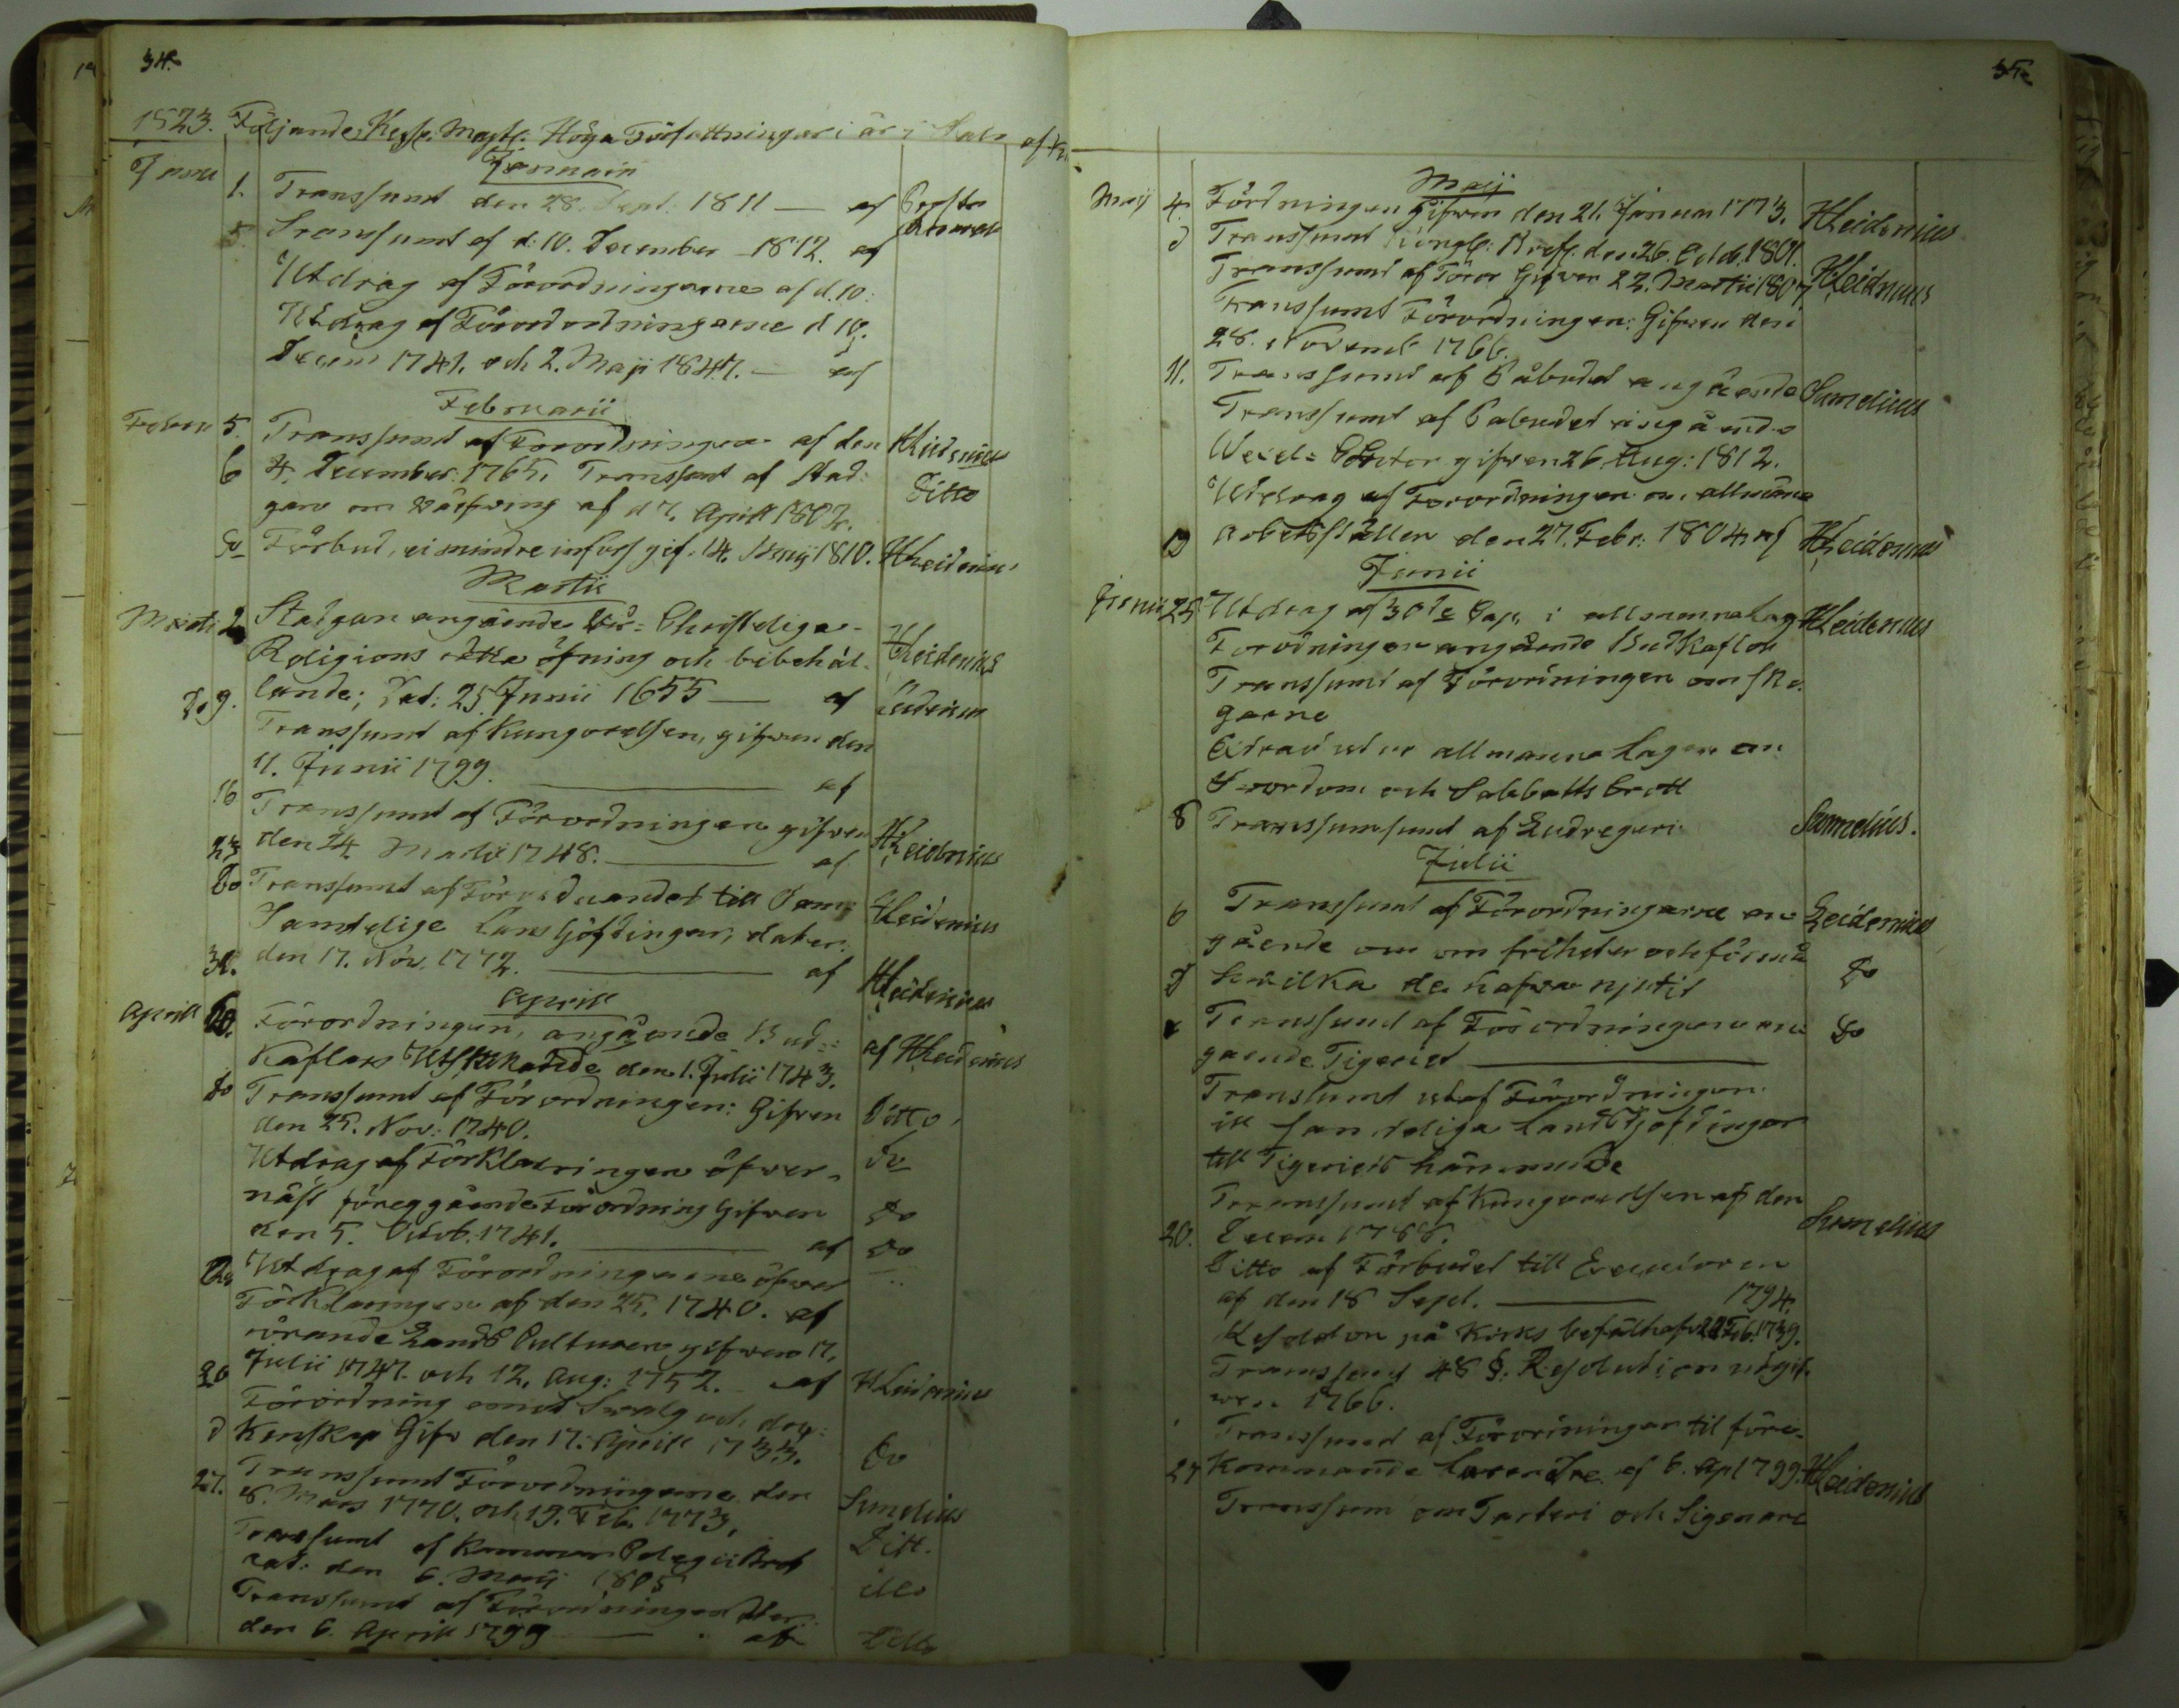 34.
1823. Följande Kejs. Majts. Höga Författningar i år
Januarii
1. Transsumt den 28. Sept. 1811 — af
5 Transsumt af d. 10. December 1812. af
Utdrag af Förordningarne af d. 10.
Utdrag af Förordordningarne d 10.
Decem 1741. och 2. Maji 1847. — af
Februarii
5. Transsumt af Forordningen af den HLeidenius
6 4. December 1765. Transsumt af Stad: Ditto
gan om Värfning af d 7. Aprill 1802.
Do Förbud, ei mindre införs gif. 14. Maij 1810. HLeidenius
Martii
Marti 2 Stadgan angående Christeliga
Religions rätta öfning och bibehål- HLeidenius
lande; Dat: 25. Junii 1655 — af Leidenius
Do 9. Transsumt af Kungorelsen, gifwen den
11. Junii 1799. — af
16 Transsumt af Förordningen gifven HLeidenius
23 den 24. Martii 1748. — af
Do Transsumt af till HLeidenius
Samtelige Lans Höfdingar, dater:
31. den 17. Nov. 1772. — af HLeidenius
Aprill
Aprill Förordningen, angående Bud-
Kaflars den 1. Julii 1743. af HLeidenius
Do Transsumt af Förordningen: Gifven Ditto
den 25. Nov: 1740.
Utdrag af Förklaringen öfwer Do
näst föreggående Förordning Gifwen Do
den 5. Octob. 1741. — af Do
Utdrag af Förordningarne öfwer
Förklaringen af den 25. 1740. af
rörande Lands Culturen gifwen 17.
20 Julii 1747. och 12. Aug: 1752. af HLeidenius
Förordning emot Swalg och dry:
d Kenskap Gifv den 17. Aprill 1733. Do
27. Transsumt Förordningarne den
8. Mars 1770. och 19. Feb. 1773. Sumelius
Transsumt af Kammar Colegii Bref Ditt.
dat: den 6. Maij 1805
Transsumt af Förordningen
den 6. Aprill 1799 — af Ditto
35.
Maij
Maij 4. Fördningen Gifwen den 21. Januari 1773. HLeidenius
d Transsumt Kongl: Bref. den 26. Octob. 1801.
Transsumt af Föror Gifven 23. Martii 1807 HLeidnius
Transsumt Förordningen: Gifwen den
28. Novemb 1766.
11. Transsumt af Påbudet angående Sumelius
Transsumt af Pabudet angående
gifven 26. Aug: 1812.
Utdrag af Forordningen om allmäna
arbetsställen den 27. Febr. 1804. af HLeidenius
Junii
Junii 25. Utdrag af 30de Cap. i allmannalag HLeidenius
Forodningen angående Budkaflor
Transsumt af Förordningen om sko.
garne
Utdrad ut ur allmanna Lagen om
Svordom och Sabbatts brott
8 Transsumsumt af Ludreguri. Sumelius.
Julii
6 Transsumt af Förordningarne an- Leidenius
gående om om friheter och förmå
d hwilka de hafva njutit Do
Transsumt af Förordningarne an Do
gaende Tigeriet —
Transumt utaf Förordningen
ill Samteliga Landshöfdingar
till Tigeriets hämmande
Transsumt af Kungorelsen af den
20. Decem 1788. Sumelius
Ditto af Förbudet till Executoren
af den 18 Sept. — 1794.
Resolution på Kirks befälhafv 20 Feb. 1739.
Transsumt 48 §. Resolution utgif-
wen 1766.
Transsumt af Förordningen til före-
27 Kommande af 6. Ap 1799. HLeidenius
Transsum om Tarteri och Sigenare